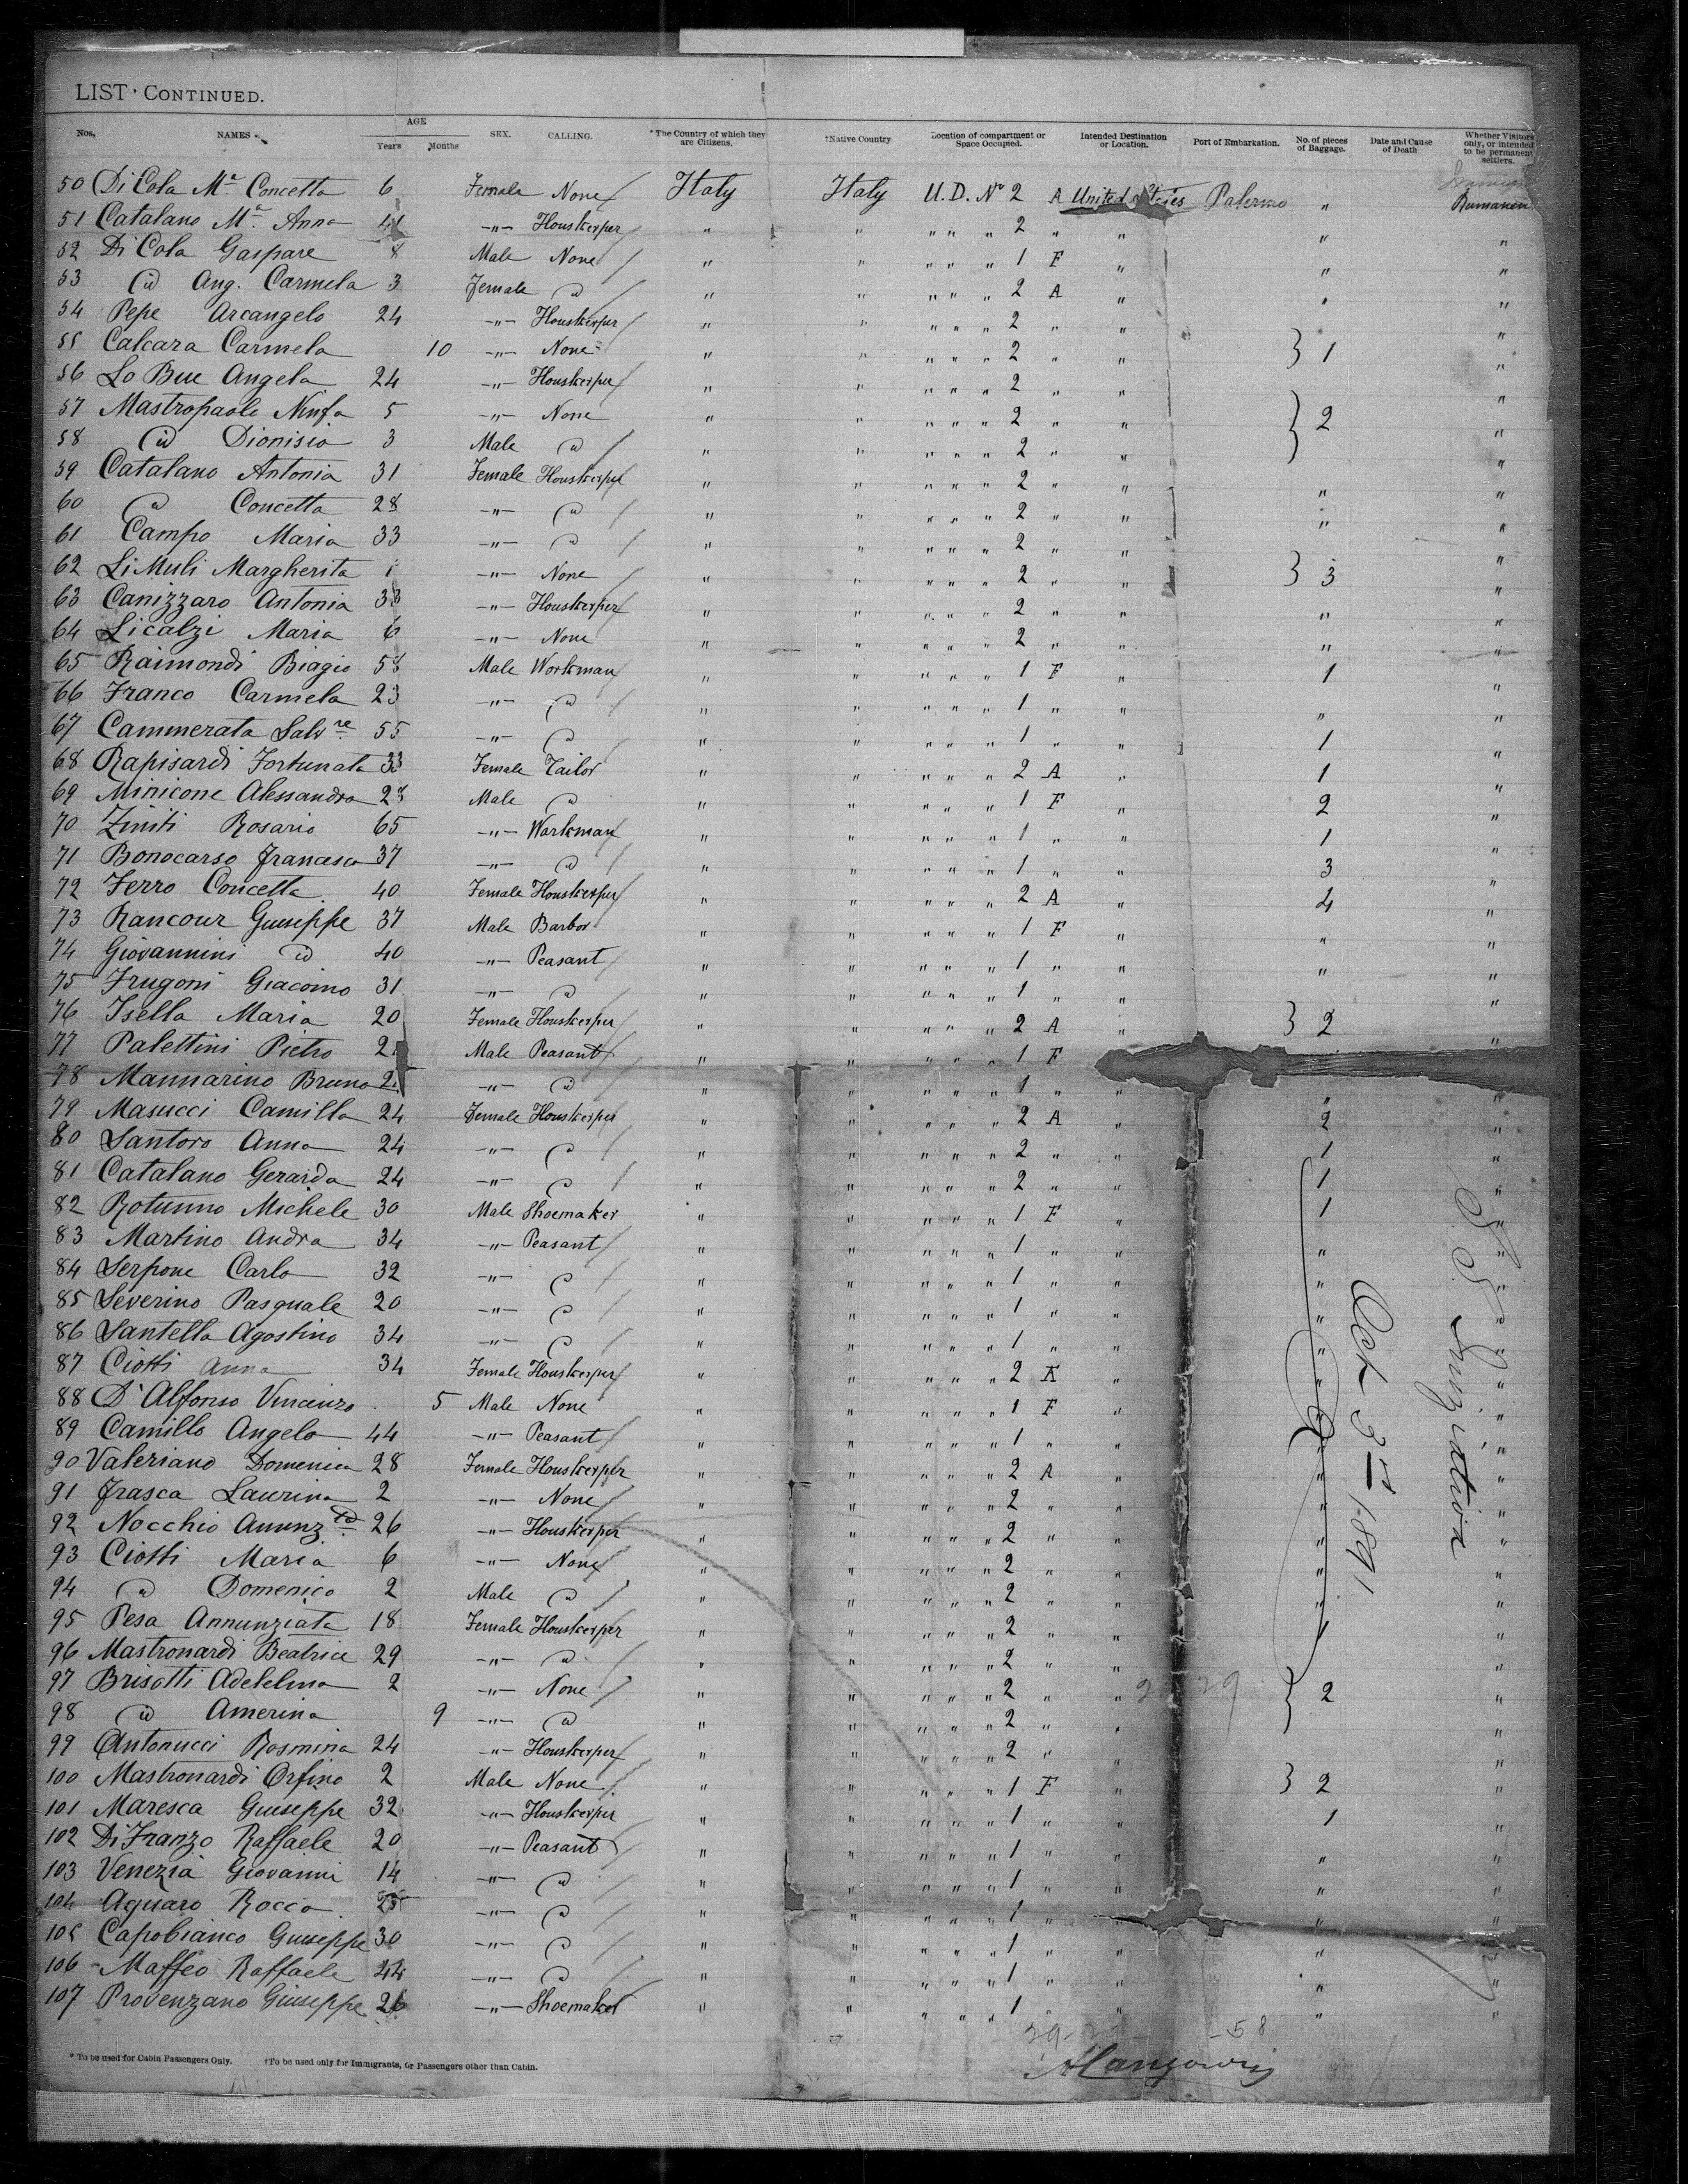 LIST · CONTINUED.
AGE
Nos. NAMES Years Months SEX. CALLING. *The Country of which they are Citizens. †Native Country Location of compartment or Space Occupied. Intended Destination or Location. Port of Embarkation. No. of pieces of Baggage. Date and Cause of Death Whether Visitors only, or intended to be permanent settlers.
50 Di Cola Mª Concetta 6 Female None Italy Italy U.D. Nº 2 A United States Palermo "
51 Catalano Mª Anna -"- Houskeeper " " " " " 2 " " " "
52 Di Cola Gaspare 8 Male None " " " " " 1 F " " "
53 id Ang. Carmela 3 Female id " " " " " 2 A " " "
54 Pepe Arcangelo 24 -"- Houskeeper " " " " " 2 " " "
55 Calcara Carmela 10 -"- None " " " " " 2 " " } 1 "
56 Lo Bue Angela 24 -"- Houskeeper " " " " " 2 " " "
57 Mastropaolo Ninfa 5 -"- None " " " " " 2 " " } 2 "
58 id Dionisio 3 Male id " " " " " 2 " " "
59 Catalano Antonia 31 Female Houskeeper " " " " " 2 " " " "
60 id Concetta 28 -"- id " " " " " 2 " " " "
61 Campo Maria 33 -"- id " " " " " 2 " " "
62 Li Muli Margherita 1 -"- None " " " " " 2 " " } 3 "
63 Canizzaro Antonia 33 -"- Houskeeper " " " " " 2 " " " "
64 Licalzi Maria 6 -"- None " " " " " 2 " " " "
65 Raimondi Biagio 58 Male Workman " " " " " 1 F " 1 "
66 Franco Carmela 23 -"- id " " " " " 1 " " " "
67 Cammerata Salvre 55 -"- id " " " " " 1 " " 1 "
68 Rapisardi Fortunata 33 Female Tailor " " " " " 2 A " 1 "
69 Minicone Alessandro 28 Male id " " " " " 1 F " 2 "
70 Ziniti Rosario 65 -"- Workman " " " " " 1 " " 1 "
71 Bonocarso Francesco 37 -"- id " " " " " 1 " " 3 "
72 Ferro Concetta 40 Female Houskeeper " " " " " 2 A " 4 "
73 Rancour Giuseppe 37 Male Barbor " " " " " 1 F " " "
74 Giovannini id 40 -"- Peasant " " " " " 1 " " " "
75 Frugoni Giacomo 31 -"- id " " " " " 1 " " "
76 Isella Maria 20 Female Houskeeper " " " " " 2 A " } 2 "
77 Palettini Pietro Male Peasant " " " " " 1 F
78 Mannarino Bruno -"- id " " " " " 1 " " " "
79 Masucci Camilla 24 Female Houskeeper " " " " " 2 A " 2 "
80 Santoro Anna 24 -"- id " " " " " 2 " " 1 "
81 Catalano Gerarda 24 -"- id " " " " " 2 " " 1 "
82 Rotunno Michele 30 Male Shoemaker " " " " " 1 F " 1 "
83 Martino Andra 34 -"- Peasant " " " " " 1 " " " "
84 Serpone Carlo 32 -"- id " " " " " 1 " " " "
85 Severino Pasquale 20 -"- id " " " " " 1 " " " "
86 Santella Agostino 34 -"- id " " " " " 1 " " " "
87 Ciotti Anna 34 Female Houskeeper " " " " " 2 A " " "
88 D'Alfonso Vincenzo 5 Male None " " " " " 1 F " "
89 Camillo Angelo 44 -"- Peasant " " " " " 1 " " "
90 Valeriano Domenica 28 Female Houskeeper " " " " " 2 A " " "
91 Frasca Laurina 2 -"- None " " " " " 2 " " " "
92 Nocchio Annunzta 26 -"- Houskeeper " " " " " 2 " " " "
93 Ciotti Maria 6 -"- None " " " " " 2 " " " "
94 id Domenico 2 Male id " " " " " 2 " " " "
95 Pesa Annunziata 18 Female Houskeeper " " " " " 2 " " 1 "
96 Mastronardi Beatrice 29 -"- id " " " " " 2 " " "
97 Brisotti Adelelma 2 -"- None " " " " " 2 " " } 2 "
98 id Amerina 9 -"- id " " " " " 2 " " "
99 Antonucci Rosmina 24 -"- Houskeeper " " " " " 2 " " "
100 Mastronardi Orfino 2 Male None " " " " " 1 F " } 2 "
101 Maresca Giuseppe 32 -"- Houskeeper " " " " " 1 " " 1 "
102 Di Franzo Raffaele 20 -"- Peasant " " " " " 1 " " " "
103 Venezia Giovanni 14 -"- id " " " " " 1 " " " "
104 Aquaro Rocco 25 -"- id " " " " " 1 " " " "
105 Capobianco Giuseppe 30 -"- id " " " " " 1 " " " "
106 Maffeo Raffaele 44 -"- id " " " " " 1 " " " "
107 Provenzano Giuseppe 26 -"- Shoemaker " " " " " 1 " " " "
Oct 3rd 1891
S.S.
29
58
* To be used for Cabin Passengers Only. †To be used only for Immigrants, or Passengers other than Cabin.